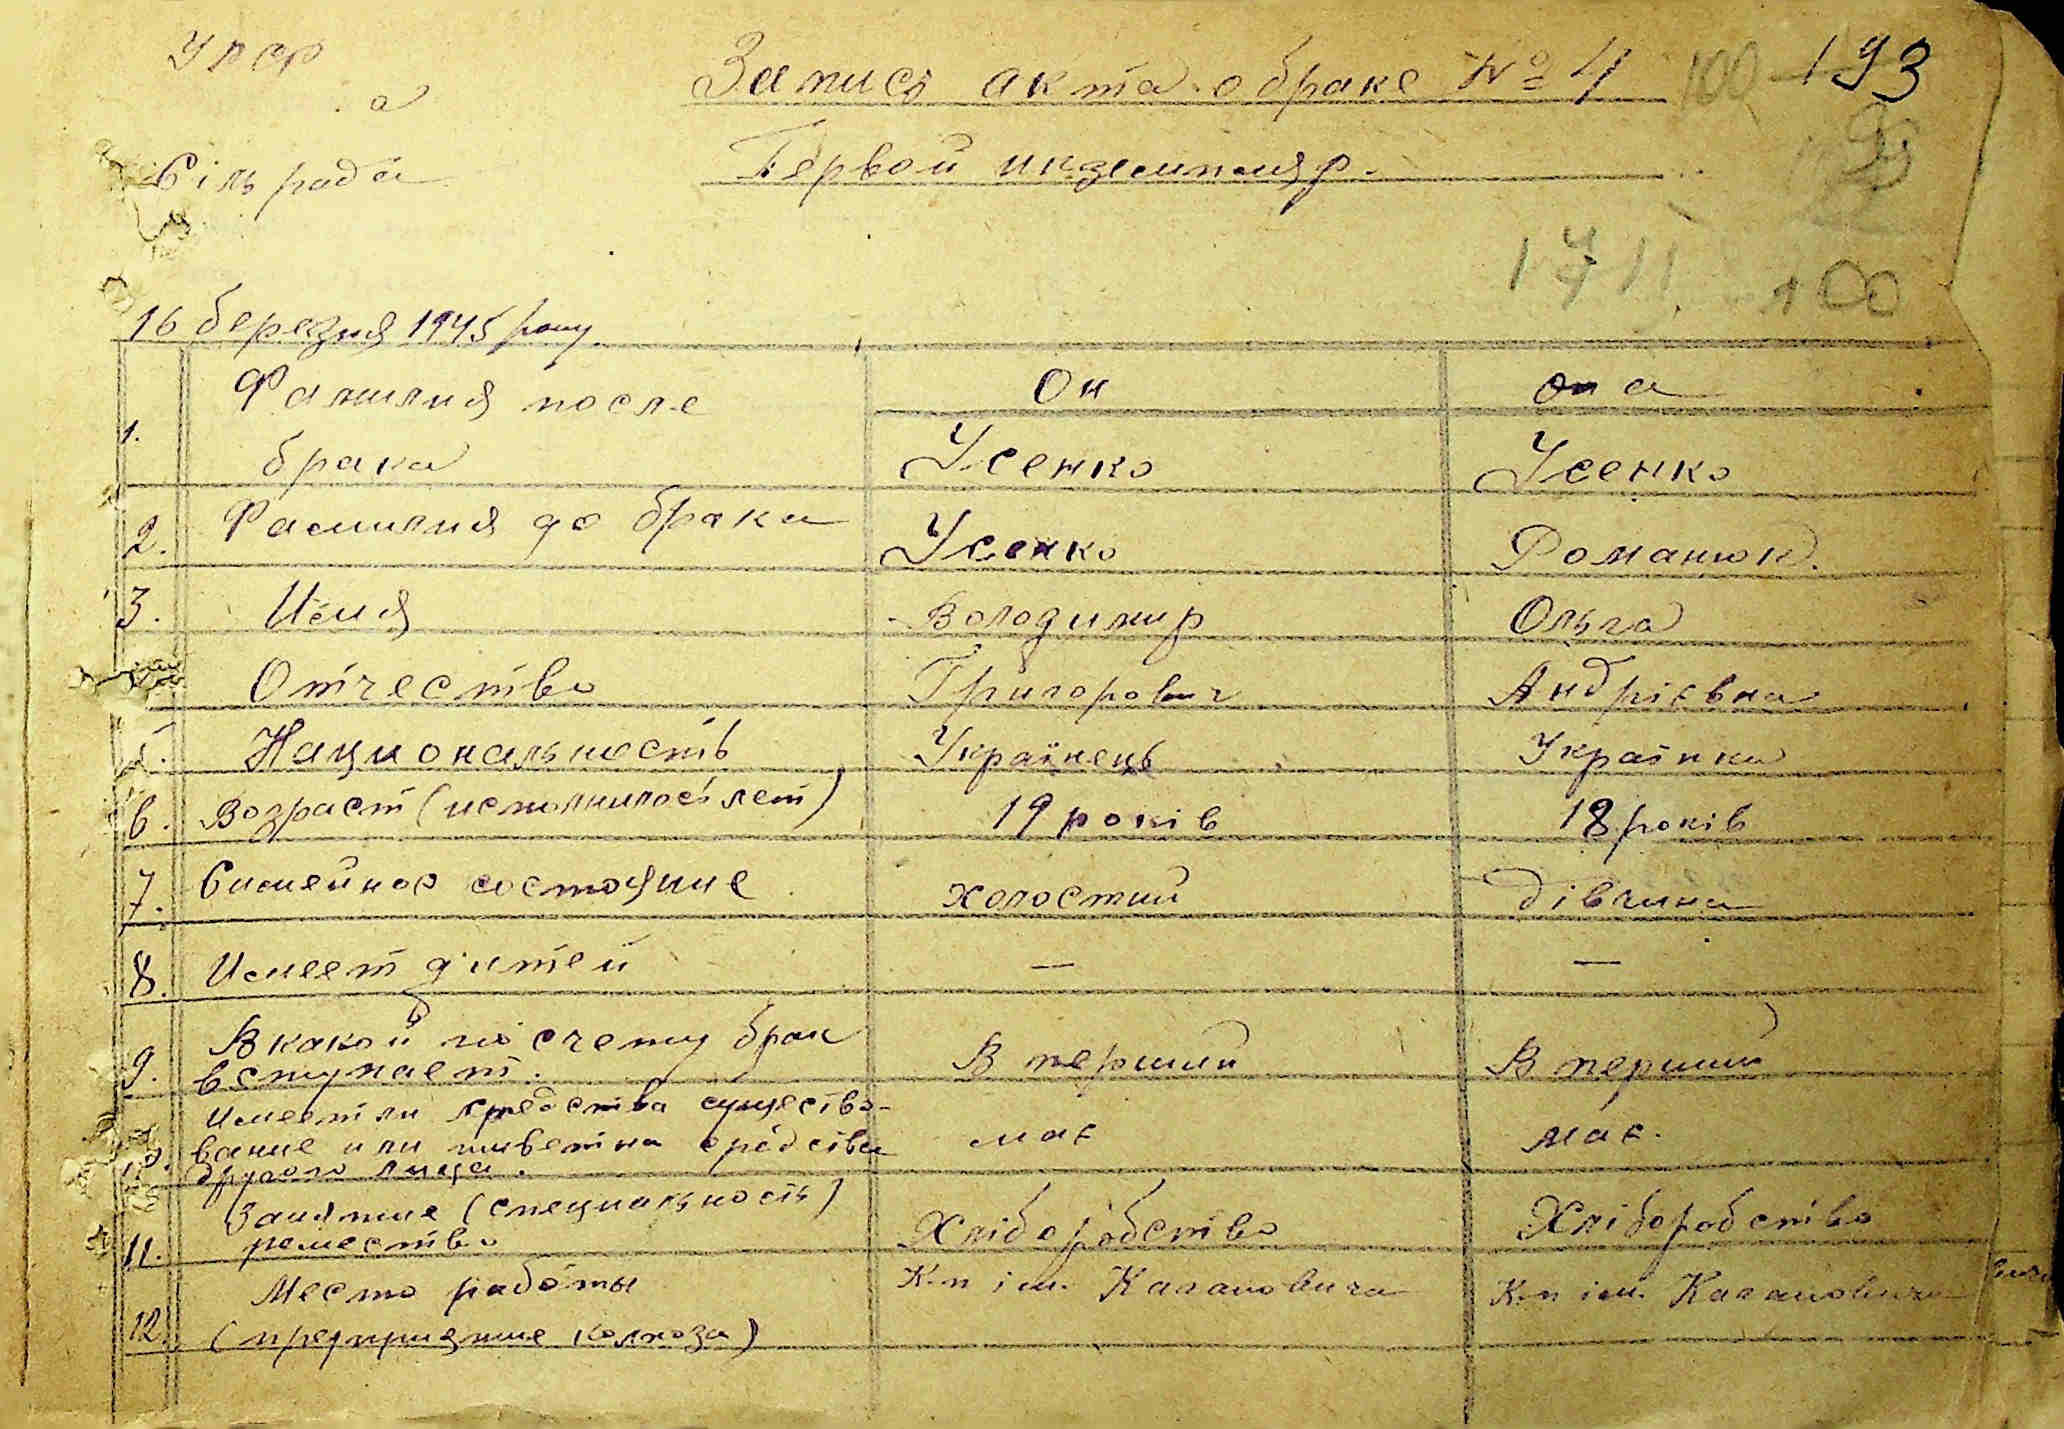 УРСР
Запись акта о браке № 4 100 193
а
Сільрада
Первой икземпляр.
100
16 березня 1945 року
Он она
1. Фамилия после
брака Усенко Усенко
2. Фамилия до брака Усенко Романюк.
3. Имя Володимир Ольга
Отчество Григорович Андрієвна
5. Национальность Українець Українка
6. Возраст (исполнилось лет) 19 років 18 років
7. Симейное состояние холостий дівчина
8. Имеет дитей — —
9. В какой по счету брак
вступает. В перший В перший
Имеет ли средства существо-
вание или живет на средства має має.
другого лица.
Занятие (специальность)
11. ремество Хліборобство Хліборобство
Место работы К-п ім. Кагановича К-п ім. Кагановича
12. (предприятие колхоза)